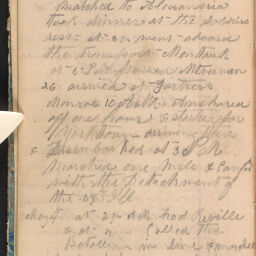 marched to Alexandria
took dinner at the soldiers
rest. at 3 went aboard
the transport
at 6 P.M. passed Mt. Vernon
26 arrived at Fortress
Monroe 10 A.M. Anchored
off one hour & started for
Yorktown arriving there
& Disembarked at 3 P.M.
Marched one mile & camped
with the Detachment of
the 39th Ill
May 4th at 2 A.M. had Reville
& at 4 Called the
Batallion in line & marched